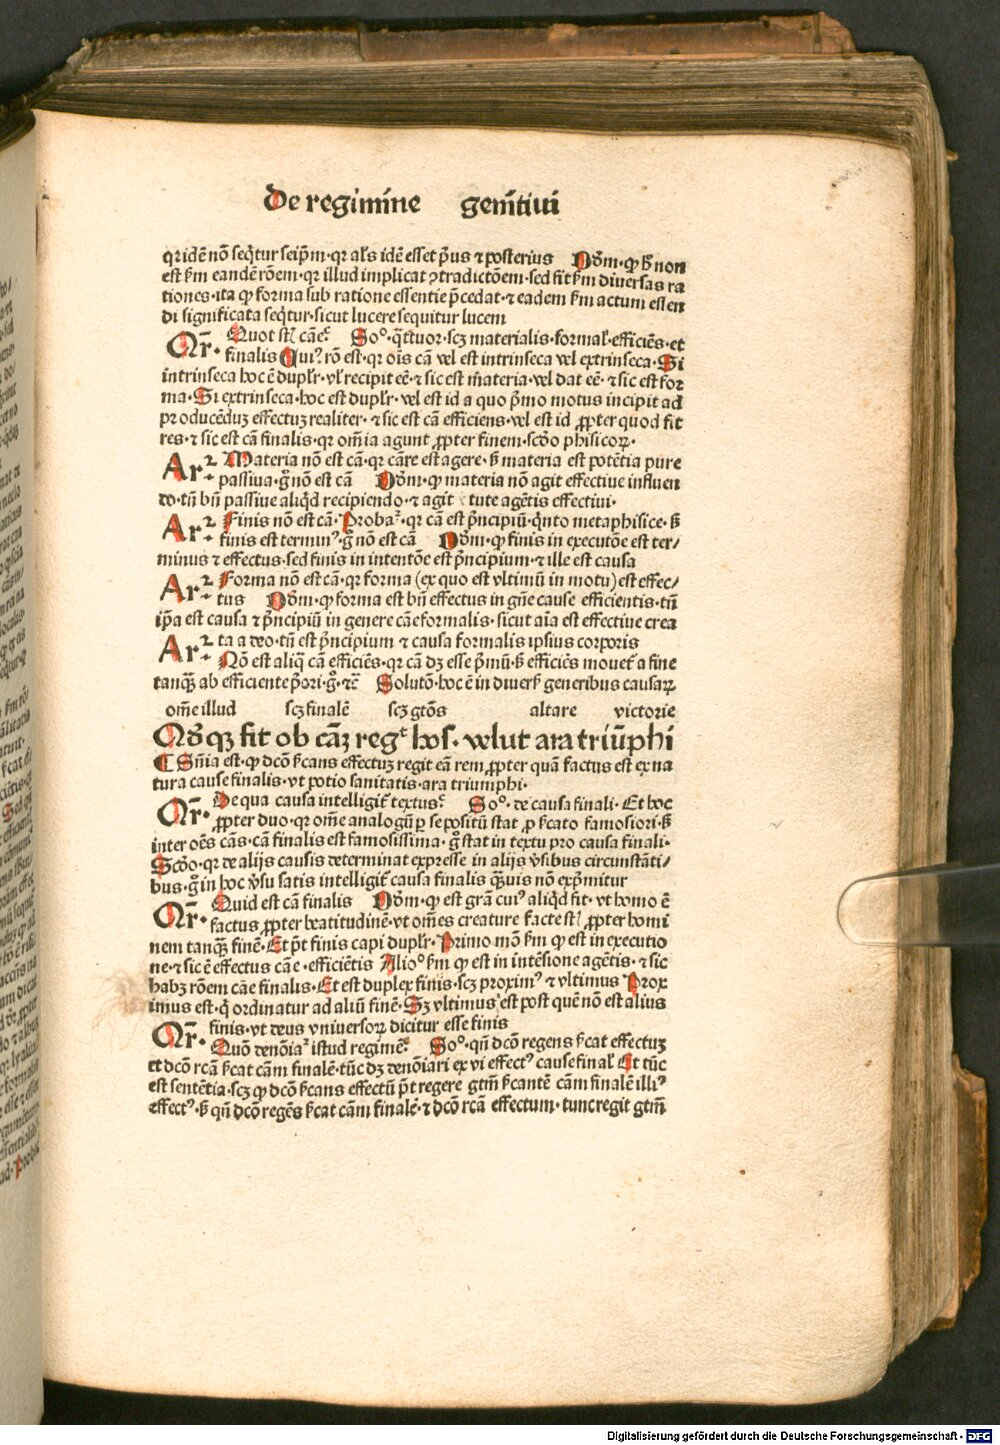 De regimine genitiui
qr idē nō seq̄tur seip̄m·qr al's idē esset p̄us ⁊ posterius Dōm·ꝙ h̄ non
est s̄m eandē rōem·qr illud implicat ꝯtradictōem·sed fit s̄m diuersas ra
tiones·ita ꝙ forma sub ratione essentie p̄cedat·⁊ eadem s̄m actum essen
di significata seq̄tur·sicut lucere sequitur lucem
Qr̄· Quot st̄ cāe? So°·q̄ttuor·scꝫ materialis·formal'·efficiēs·et
finalis Cui? rō est·qr oīs cā vel est intrinseca vel extrinseca·Si
intrinseca hoc ē dupl'r·vl' recipit eē·⁊ sic est m̄ateria·vel dat eē·⁊ sic est for
ma·Si extrinseca·hoc est dupl'r·vel est id a quo p̄mo motus incipit ad
producēduꝫ effectuꝫ realiter·⁊ sic est cā efficiens·vel est id ꝓpter quod fit
res·⁊ sic est cā finalis·qr om̄ia agunt ꝓpter finem·scd̄o phisicoꝝ·
Ar² Materia nō est cā·qr cāre est agere·s̄ materia est potētia pure
passiua·g̊ nō est cā Dōm·ꝙ materia nō agit effectiue influen
do·tn̄ bn̄ passiue aliq̄d recipiendo·⁊ agit tute agētis effectiui·
Ar² Finis nō est cā·Proba²·qr cā est p̄ncipiū·q̄nto metaphisice·s̄
finis est termin⁹·g̊ nō est cā Dōm·ꝙ finis in executōe est ter/
minus ⁊ effectus·sed finis in intentōe est p̄ncipium·⁊ ille est causa
Ar² Forma nō est cā·qr forma (ex quo est vltimū in motu) est effec/
tus Dōm·ꝙ forma est bn̄ effectus in gn̄e cause efficientis·tn̄
ip̄a est causa ⁊ p̄ncipiū in genere cāe formalis·sicut aīa est effectiue crea
ta a deo·tn̄ est p̄ncipium ⁊ causa formalis ipsius corporis
Ar² Nō est aliq̄ cā efficiēs·qr cā dꝫ esse p̄mū·s̄ efficiēs mouet' a fine
tanq̄ꝫ ab efficiente p̄ori·g̊·⁊c̄ Solutō·hoc ē in diuers' generibus causaꝝ
om̄e illud scꝫ finalē scꝫ gtōs altare victorie
Nō quꝫ fit ob cāꝫ regᵗ hos·velut ara triūphi
¶ Sn̄ia est·ꝙ dcō s̄cans effectuꝫ regit eā rem ꝓpter quā factus est ex na
tura cause finalis·vt potio sanitatis·ara triumphi·
Qr̄· De qua causa intelligit' textus? So°·de causa finali·Et hoc
ꝓpter duo·qr om̄e analogū p se positū stat ꝓ s̄cato famosiori·s̄
inter oēs cās·cā finalis est famosissima·g̊ stat in textu pro causa finali·
Scd̄o·qr de alijs causis determinat expresse in alijs v̄sibus circumstāti/
bus·g̊ in hoc v̄su satis intelligit' causa finalis q̄ꝫuis nō exp̄mitur
Qr̄· Quid est cā finalis Dōm·ꝙ est grā cui⁹ aliq̄d fit·vt homo ē
factus ꝓpter beatitudinē·vt om̄es creature facte st̄ ꝓpter homi
nem tanq̄ꝫ finē·Et p̄t finis capi dupl'r·Primo mō s̄m ꝙ est in executio
ne·⁊ sic ē effectus cāe·efficiētis Alio° s̄m ꝙ est in intēsione agētis·⁊ sic
habꝫ rōem cāe finalis·Et est duplex finis·scꝫ proxim⁹ ⁊ vltimus Prox
imus est·q̄ ordinatur ad aliū finē·Sꝫ vltimus est post quē nō est alius
finis·vt deus vniuersoꝝ dicitur esse finis
Qr̄· Quō denōia² istud regimē? So°·qn̄ dcō regens s̄cat effectuꝫ
et dcō rcā s̄cat cām finalē·tūc dꝫ denōiari ex vi effect⁹ cause final' Et tūc
est sentētia·scꝫ ꝙ dcō s̄cans effectū p̄t regere gtm̄ s̄cantē cām finalē illi⁹
effect⁹·s̄ qn̄ dcō regēs s̄cat cām finalē·⁊ dcō rcā effectum·tunc regit gtm̄
Digitalisierung gefördert durch die Deutsche Forschungsgemeinschaft - DFG